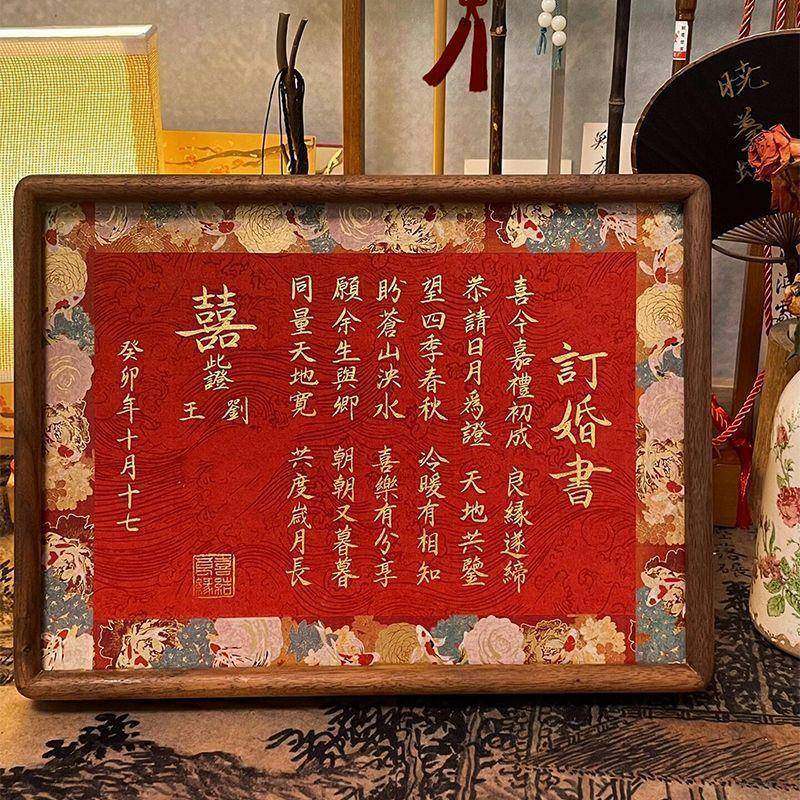 訂婚書
喜今嘉禮初成 良緣遂締
恭請日月為證 天地共鑒
望四季春秋 冷暖有相知
盼蒼山泱水 喜樂有分享
願余生與卿 朝朝又暮暮
同量天地寬 共度歲月長
囍
此證
劉
王
癸卯年十月十七
喜結良緣